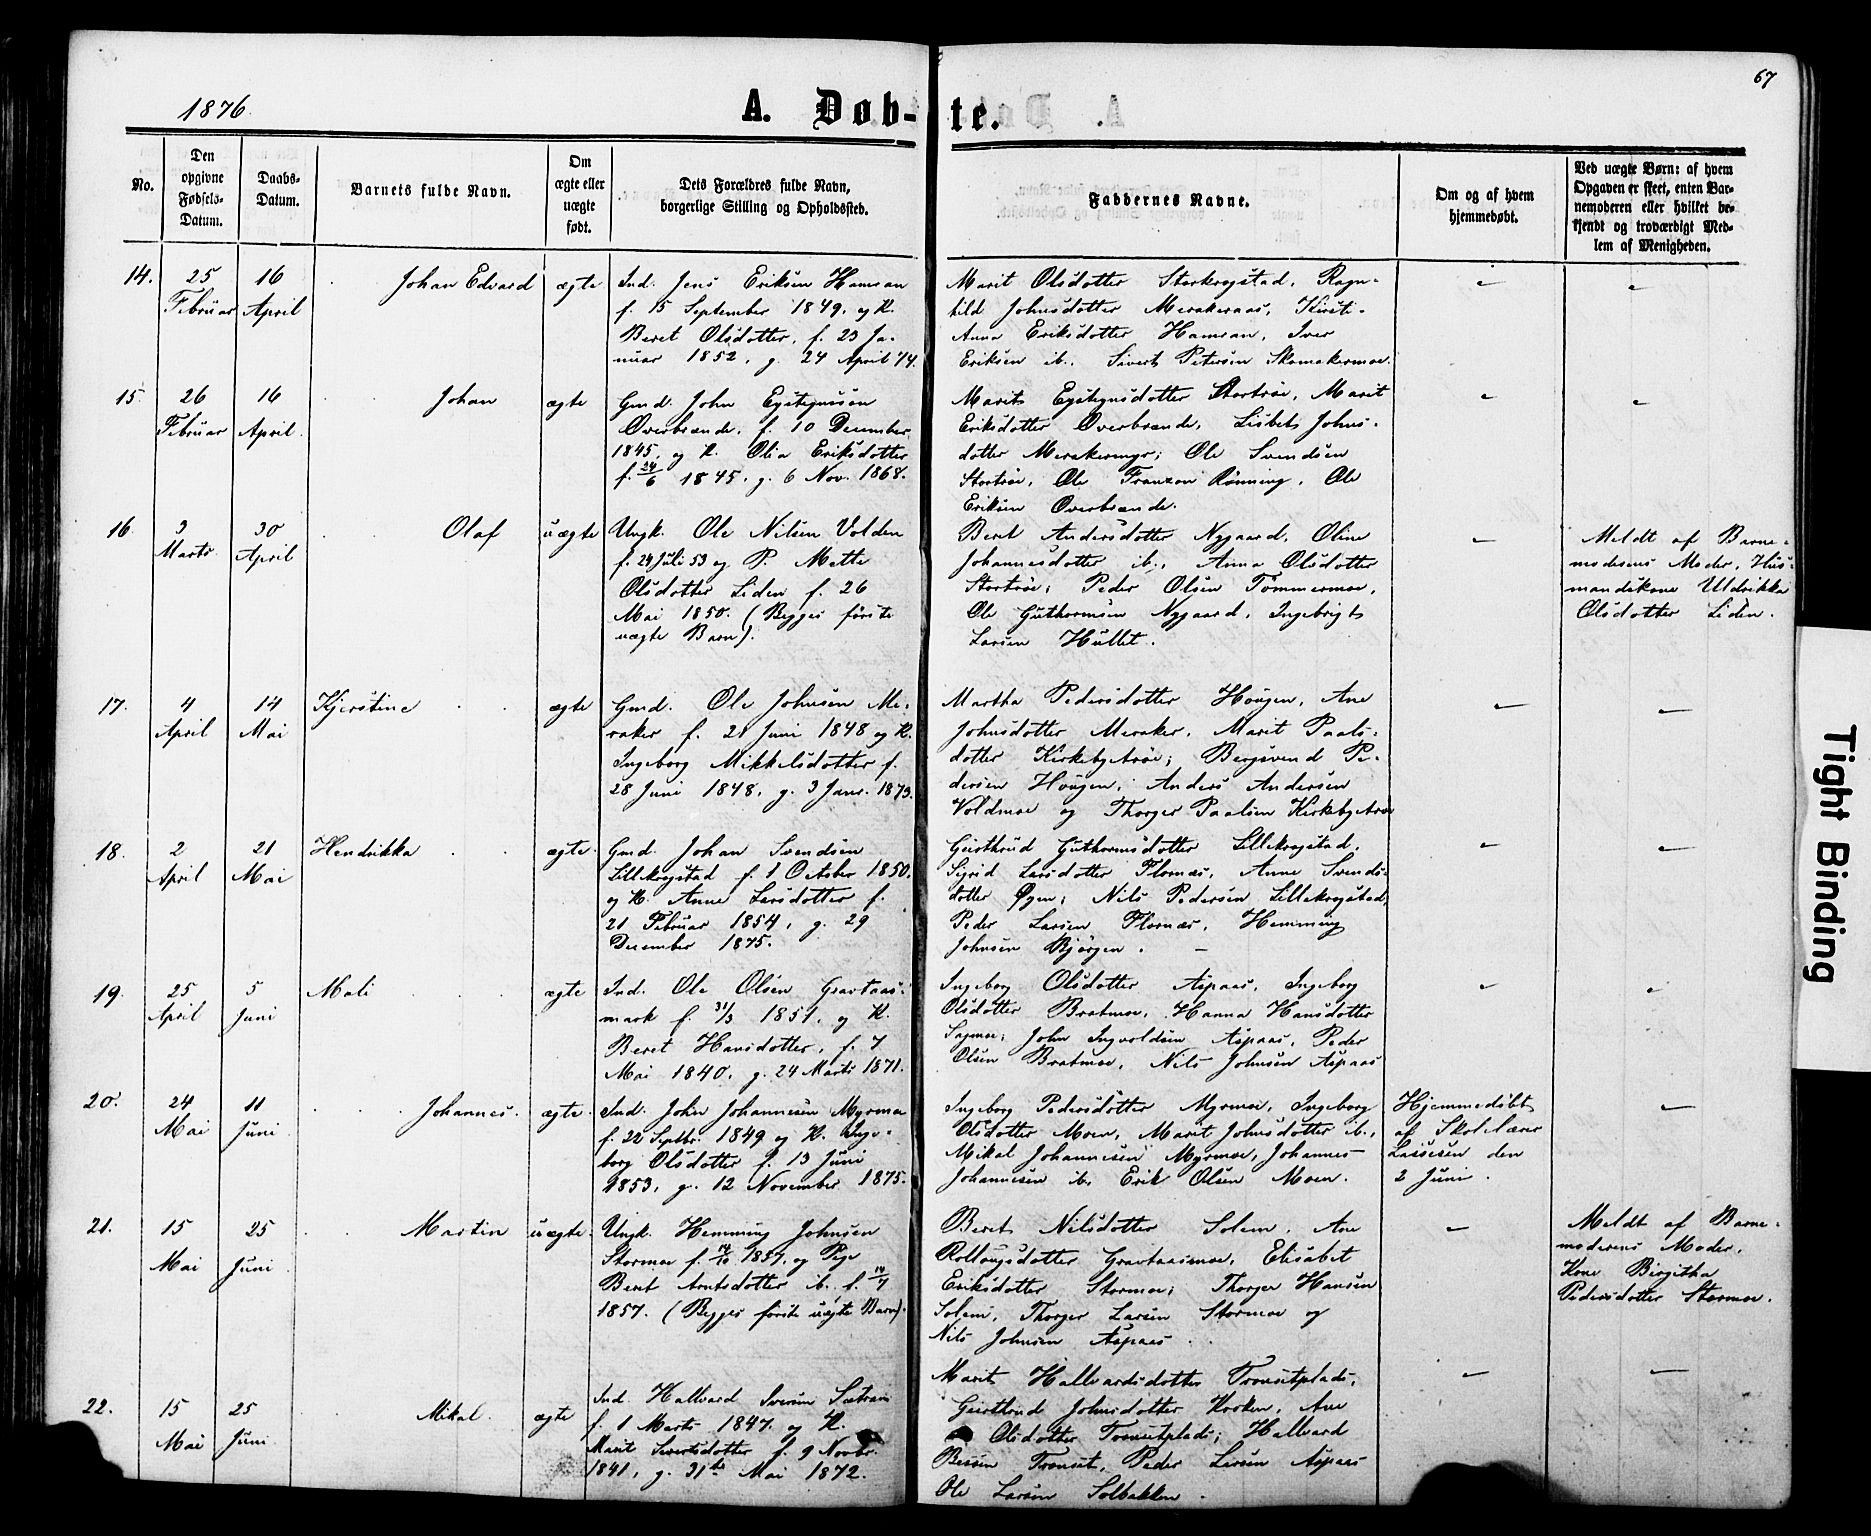 67
1876.
A. Døb-te.
No.
Den opgivne Fødsels-Datum.
Daabs-Datum.
Barnets fulde Navn.
Om ægte eller uægte født.
Dets Forældres fulde Navn, borgerlige Stilling og Opholdssted.
Faddernes Navne.
Om og af hvem hjemmedøbt.
Ved uægte Børn: af hvem Opgaven er skeet, enten Barnemoderen eller hvilket bekjendt og troværdigt Medlem af Menigheden.
14.
25 Februar
16 April
Johan Edvard
ægte
Ind. Jens Eriksen Hamran
f. 15 September 1849, og K.
Beret Olsdotter, f. 23 Ja-
nuar 1852, g. 24 April 74.
Marit Olsdotter Storkrogstad, Ragn-
hild Johnsdotter Merakeraas, Kirsti-
Anna Eriksdotter Hamran, Iver
Eriksen ib., Sivert Petersen Skomakermoe.
15.
26 Februar
16 April.
Johan
ægte
Gmd. John Eysteinssen
Overbrænde, f. 10 December
1845, og K. Olia Eriksdotter
f. 24/6 1845, g. 6 Nov. 1868.
Marit Eysteinsdotter Stortrøe, Marit
Eriksdotter Overbrænde, Lisbet Johns-
dotter Merakermyr; Ole Svendsen
Stortrøe, Ole Franzen Rønning, Ole
Eriksen Overbrænde.
16
3 Marts
30 April
Olaf
uægte
Ungk. Ole Nilsen Volden
f. 24 Juli 53 og P. Mette
Olsdotter Liden f. 26
Mai 1850. (Begges første
uægte Barn).
Beret Andersdotter Nygaard, Oline
Johannesdotter ib., Anna Olsdotter
Stortrøe; Peder Olsen Tømmermoe,
Ole Guthormsen Nygaard, Ingebrigt
Larsen Hullet.
Meldt af Barne-
moderens Moder, Hus-
mandskone Uldrikka
Olsdotter Liden.
17.
4 April
14 Mai
Kjerstine
ægte
Gmd. Ole Johnsen Me-
raker f. 21 Juni 1848 og K.
Ingeborg Mikkelsdotter f.
28 Juni 1848, g. 3 Janr. 1873.
Martha Pedersdotter Hougen, Ane
Johnsdotter Meraker, Marit Paals-
dotter Kirkebytrøe; Bergsvend Pe-
dersen Hougen, Anders Andersen
Voldmoe og Thorger Paalsen Kirkebytrøe
18.
2 April
21 Mai
Hendrikka
ægte.
Gmd. Johan Svendsen
Lillekrogstad f. 1 October 1850,
og K. Anne Larsdotter f.
21 Februar 1854, g. 29
December 1875.
Gurthrud Guthormsdotter Lillekrogstad,
Sigrid Larsdotter Flornæs, Anne Svends-
dotter Øyen; Nils Pedersen Lillekrogstad,
Peder Larsen Flornæs, Hemming
Johnsen Bjørgen.
19.
25 April
5 Juni
Mali
ægte
Ind. Ole Olsen Gravtaas-
mark f. 31/3 1851, og K.
Beret Hansdotter, f. 7
Mai 1840, g. 24 Marts 1871.
Ingeborg Olsdotter Aspaas, Ingeborg
Olsdotter Bratmoe, Hanna Hansdotter
Sagmoe; John Ingvoldsen Aspaas, Peder
Olsen Bratmoe, Nils Johnsen Aspaas
20.
24 Mai
11 Juni
Johannes.
ægte.
Ind. John Johannesen Myrmoe
f. 22 Septbr. 1849 og K. Inge-
borg Olsdotter f. 13 Juni
1853, g. 12 November 1875.
Ingeborg Pedersdotter Myrmoe, Ingeborg
Olsdotter Moen, Marit Johnsdotter ib.,
Mikal Johannesen Myrmoe, Johannes
Johannesen ib, Erik Olsen Moen.
Hjemmedøbt
af Skolelærer
Lassesen den
2 Juni.
21.
15 Mai
25 Juni
Martin
uægte.
Ungk. Hemming Johnsen
Stormoe f. 14/10 1857, og Pige
Beret Arntsdotter ib, f. 14/7
1857. (Begges første uægte Barn).
Beret Nilsdotter Solem, Ane
Rollougsdotter Gravtaasmoe, Elisabet
Eriksdotter Stormoe; Thorger Hansen
Solem, Thorger Larsen Stormoe og
Nils Johnsen Aspaas.
Meldt af Barne-
moderens Moder,
Kone Birgitha
Pedersdotter Stormoe.
22.
15 Mai
25 Juni
Mikal.
ægte
Ind. Hallvard Iversen Sætran
f. 1 Marts 1847, og K.
Marit Sivertsdotter f. 9 Novbr.
1841, g. 31te Mai 1872.
Marit Hallvardsdotter Tronsetplads,
Geirtrud Johnsdotter Kroken, Ane
Olsdotter Tronsetplads; Hallvard
Bersen Tronset, Peder Larsen Aspaas
Ole Larsen Solbakken.
Tight Binding